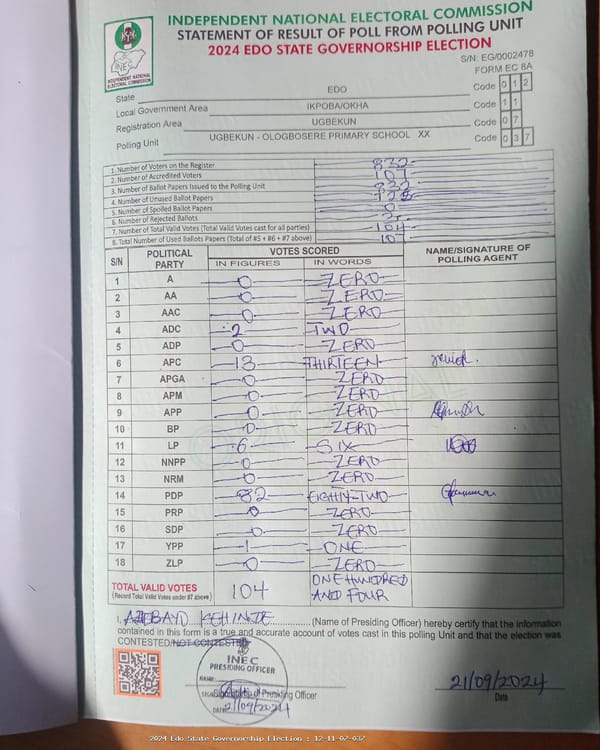 INDEPENDENT NATIONAL ELECTORAL COMMISSION
STATEMENT OF RESULT OF POLL FROM POLLING UNIT
2024 EDO STATE GOVERNORSHIP ELECTION
S/N: EG/0002478
FORM EC 8A
INEC
INDEPENDENT NATIONAL
ELECTORAL COMMISSION
State EDO Code 0 1 2
Local Government Area IKPOBA/OKHA Code 1 1
Registration Area UGBEKUN Code 0 7
Polling Unit UGBEKUN - OLOGBOSERE PRIMARY SCHOOL XX Code 0 3 7
1. Number of Voters on the Register 832
2. Number of Accredited Voters 107
3. Number of Ballot Papers Issued to the Polling Unit 832
4. Number of Unused Ballot Papers 725
5. Number of Spoiled Ballot Papers 0
6. Number of Rejected Ballots 3
7. Number of Total Valid Votes (Total Valid Votes cast for all parties) 104
8. Total Number of Used Ballots Papers (Total of #5 + #6 + #7 above) 107
S/N POLITICAL PARTY VOTES SCORED NAME/SIGNATURE OF POLLING AGENT
IN FIGURES IN WORDS
1 A 0 ZERO
2 AA 0 ZERO
3 AAC 0 ZERO
4 ADC 2 TWO
5 ADP 0 ZERO
6 APC 13 THIRTEEN
7 APGA 0 ZERO
8 APM 0 ZERO
9 APP 0 ZERO
10 BP 0 ZERO
11 LP 6 SIX
12 NNPP 0 ZERO
13 NRM 0 ZERO
14 PDP 82 EIGHTY-TWO
15 PRP 0 ZERO
16 SDP 0 ZERO
17 YPP 1 ONE
18 ZLP 0 ZERO
TOTAL VALID VOTES 104 ONE HUNDRED
(Record Total Valid Votes under #7 above) AND FOUR
I, KEHINDE (Name of Presiding Officer) hereby certify that the information
contained in this form is a true and accurate account of votes cast in this polling Unit and that the election was
CONTESTED/NOT CONTESTED
INEC
PRESIDING OFFICER
NAME:
Signature of Presiding Officer
DATE 21/09/2024
21/09/2024
Date
2024 Edo State Governorship Election : 12-11-07-037